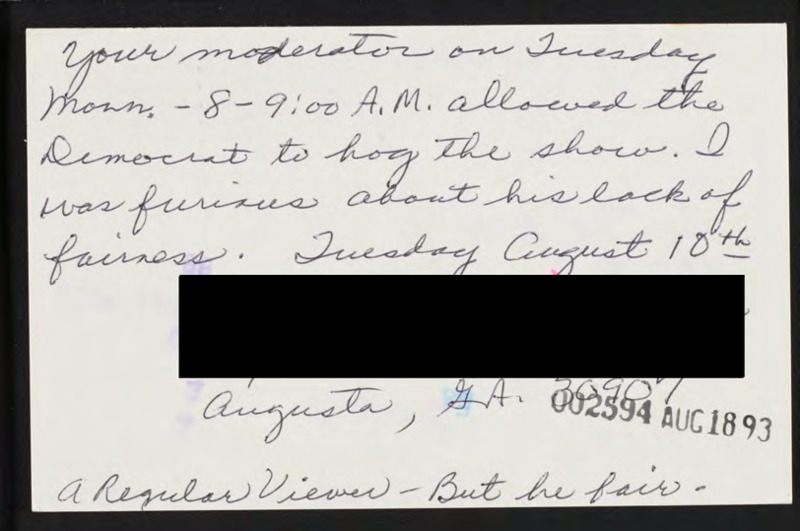 Your moderator on Tuesday
Morn. - 8 - 9:00 A.M. allowed the
Democrat to hog the show. I
was furious about his lack of
fairness. Tuesday August 10th
Augusta, GA. 30907
002594 AUG 18 93
A Regular Viewer - But be fair.